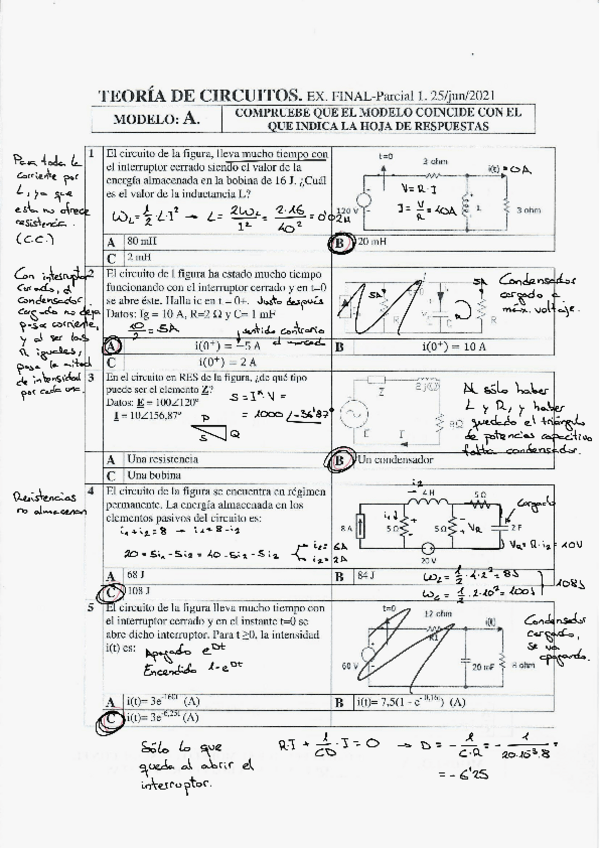 TEORÍA DE CIRCUITOS. EX. FINAL-Parcial 1. 25/jun/2021
MODELO: A.
COMPRUEBE QUE EL MODELO COINCIDE CON EL
QUE INDICA LA HOJA DE RESPUESTAS
Pasa toda la
corriente por
L, ya que
esta no ofrece
resistencia.
(C.C.)
1
El circuito de la figura, lleva mucho tiempo con
el interruptor cerrado siendo el valor de la
energía almacenada en la bobina de 16 J. ¿Cuál
es el valor de la inductancia L?
W_L = 1/2 · L · I² → L = 2W_L/I² = 2·16/40² = 0'02 H
t=0
3 ohm
i(t) = 0A
V = R · I
I = V/R = 40A
120 V
L
3 ohm
A 80 mH
B 20 mH
C 2 mH
Con interruptor
cerrado, el
condensador
cargado no deja
pasar corriente,
y al ser las
R iguales,
pasa la mitad
de intensidad
por cada una.
2
El circuito de l figura ha estado mucho tiempo
funcionando con el interruptor cerrado y en t=0
se abre éste. Halla ic en t = 0+. Justo después
Datos: Ig = 10 A, R=2 Ω y C= 1 mF
10/2 = 5A
sentido contrario
al marcado
5A
5A
R
C
R
Condensador
cargado a
máx. voltaje.
A i(0⁺) = -5 A
B i(0⁺) = 10 A
C i(0⁺) = 2 A
3
En el circuito en RES de la figura, ¿de qué tipo
puede ser el elemento Z?
Datos: E = 100∠120°
I = 10∠156,87°
S = I* V =
= 1000 ∠-36'87°
P
S
Q
Z
2 jΩ
RΩ
E
I
Al sólo haber
L y R, y haber
quedado el triángulo
de potencias capacitivo
falta condensador.
A Una resistencia
B Un condensador
C Una bobina
Resistencias
no almacenan
4
El circuito de la figura se encuentra en régimen
permanente. La energía almacenada en los
elementos pasivos del circuito es:
i₁+i₂=8 → i₁=8-i₂
20 = 5i₁ - 5i₂ = 40 - 5i₂ - 5i₂
i₁ = 6A
i₂ = 2A
i₂
4 H
5 Ω
8 A
i₁
5Ω
5Ω
V_R
2 F
20 V
Cargado
V_R = R · i₂ = 10V
A 68 J
B 84 J
C 108 J
W_L = 1/2 · 4 · 2² = 8J
W_C = 1/2 · 2 · 10² = 100J
108J
5
El circuito de la figura lleva mucho tiempo con
el interruptor cerrado y en el instante t=0 se
abre dicho interruptor. Para t ≥0, la intensidad
i(t) es:
Apagado e^Dt
Encendido 1-e^Dt
t=0
12 ohm
R1
i(t)
60 V
20 mF
8 ohm
Condensador
cargado,
se va
apagando.
A i(t)= 3e^-160t (A)
B i(t)= 7,5(1 - e^-0,16t) (A)
C i(t)= 3e^-6,25t (A)
Sólo lo que
queda al abrir el
interruptor.
R·I + 1/CD · I = 0 → D = - 1/C·R = - 1/20·10⁻³·8 =
= -6'25